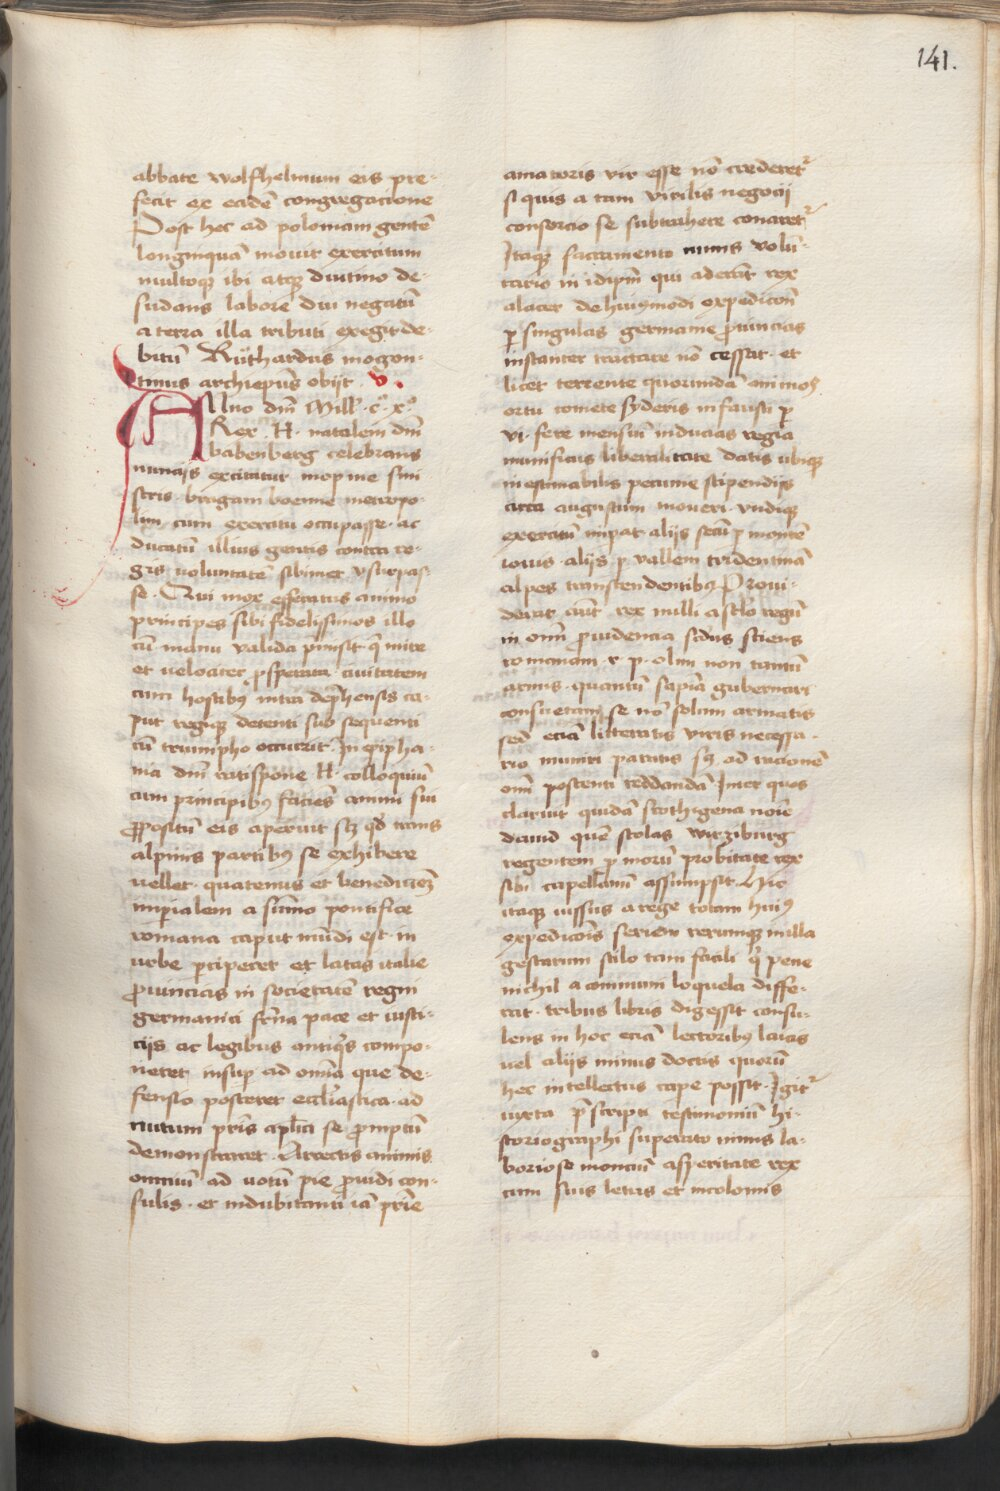 141.
abbate wolfhelmum eis pre-
fecit ex eadē congregacione
Post hec ad poloniam gentē
longinquā mouit exercitum
multoqꝫ ibi atqꝫ diutino de-
sudans labore diu negatū
a terra illa tributi exegit de-
bitū Ruthardus mogon-
tinus archiepūs obijt . v.
Anno dn̄i Mill' c° x°
Rex . H . natalem dn̄i
babenberg celebrans
nuncijs excitatur inopine sini
stris . bragam boemie metropo-
lim, cum exercitu occupasse . ac
ducatū illius gentis contra re-
gis voluntatē sibimet vsurpas-
se . Qui mox efferatus animo
principes sibi fidelissimos illo
cū manu valida p̄misit . q̄ mire
et velociter ꝓsperata ciuitatem
cum hostibꝰ intra dep̄hensis ca-
put regiqꝫ detenti suo sequenti
cū triumpho occurrit . In epipha-
nia dn̄i ratispone . H . colloquiū
cum principibꝰ faciēs animi sui
ꝓpositū eis aperuit sꝫ qd' trans
alpinis partibꝰ se exhibere
vellet . quatenus et benedictōꝫ
imꝑialem a sūmo pontifice
romana caput mūdi est . in
vrbe ꝑciperet et latas italie
ꝓuincias in societatē regni
germanici fr̄na pace et iusti-
cijs ac legibus antiqͥs compo-
neret, insuꝑ ad om̄ia que de-
fensio posceret eccl'iastica . ad
nutum pr̄is apl'ici se ꝓmptū
demonstraret . Arrectis animis
omniū ad votū pie ꝓuidi con-
sulis . et indubitanti iā pat̄e
amatoris vir esse nō crederet᷑
si quis a tam virilis negocij
consorcio se subtrahere conaret᷑
Itaqꝫ sacramento nimis volū-
tario in idip̄m qui aderāt rex
alacer de huiꝰmodi expedicōn̄
ꝑ singulas germanie ꝓuincias
instanter tractare nō cessat . et
licet terrente quorundā animoꝫ
ortu comete syderis infausti ꝑ
vi . fere mensiū inducias regia
munificus liberalitate datis vbiqꝫ
inestimabilis pecunie stipendijs
circa augustum moueri . vndiqꝫ
exercitū imꝑat alijs secū ꝑ montē
iouis . alijs ꝑ vallem tridentinā
alpes transcendentibꝰ Proui-
derat aūt rex nulli a sc̄lo regū
in om̄i ꝓuidencia sc̄dus sciens
romanam . r . p . olim non tantū
armis . quantū sapīa gubernari
consuetam, se nō solum armatis
sed eciā litteratis viris necessa-
rio muniri paratis sꝫ ad racionē
om̄i poscenti reddendā Inter quos
claruit quidā scothigena noīe
dauid quē scolas wirziburg
regentem ꝑ morū probitate rex
sibi capellanū assumpsit . Hic
itaqꝫ iussus a rege totam huiꝰ
expedicōis seriem rerumqꝫ in illa
gestarum stilo tam facili qͥ pene
nichil a communi loquela diffe-
rat . tribus libris digessit consu-
lens in hoc eciā lectoribꝰ laicis
vel alijs minus doctis quorū
hec intellectus cape possit . Igit᷑
iuxta p̄scripti testimoniū hi-
storiographi superato nimis la-
boriose monciū asperitate rex
cum suis letus et incolomis